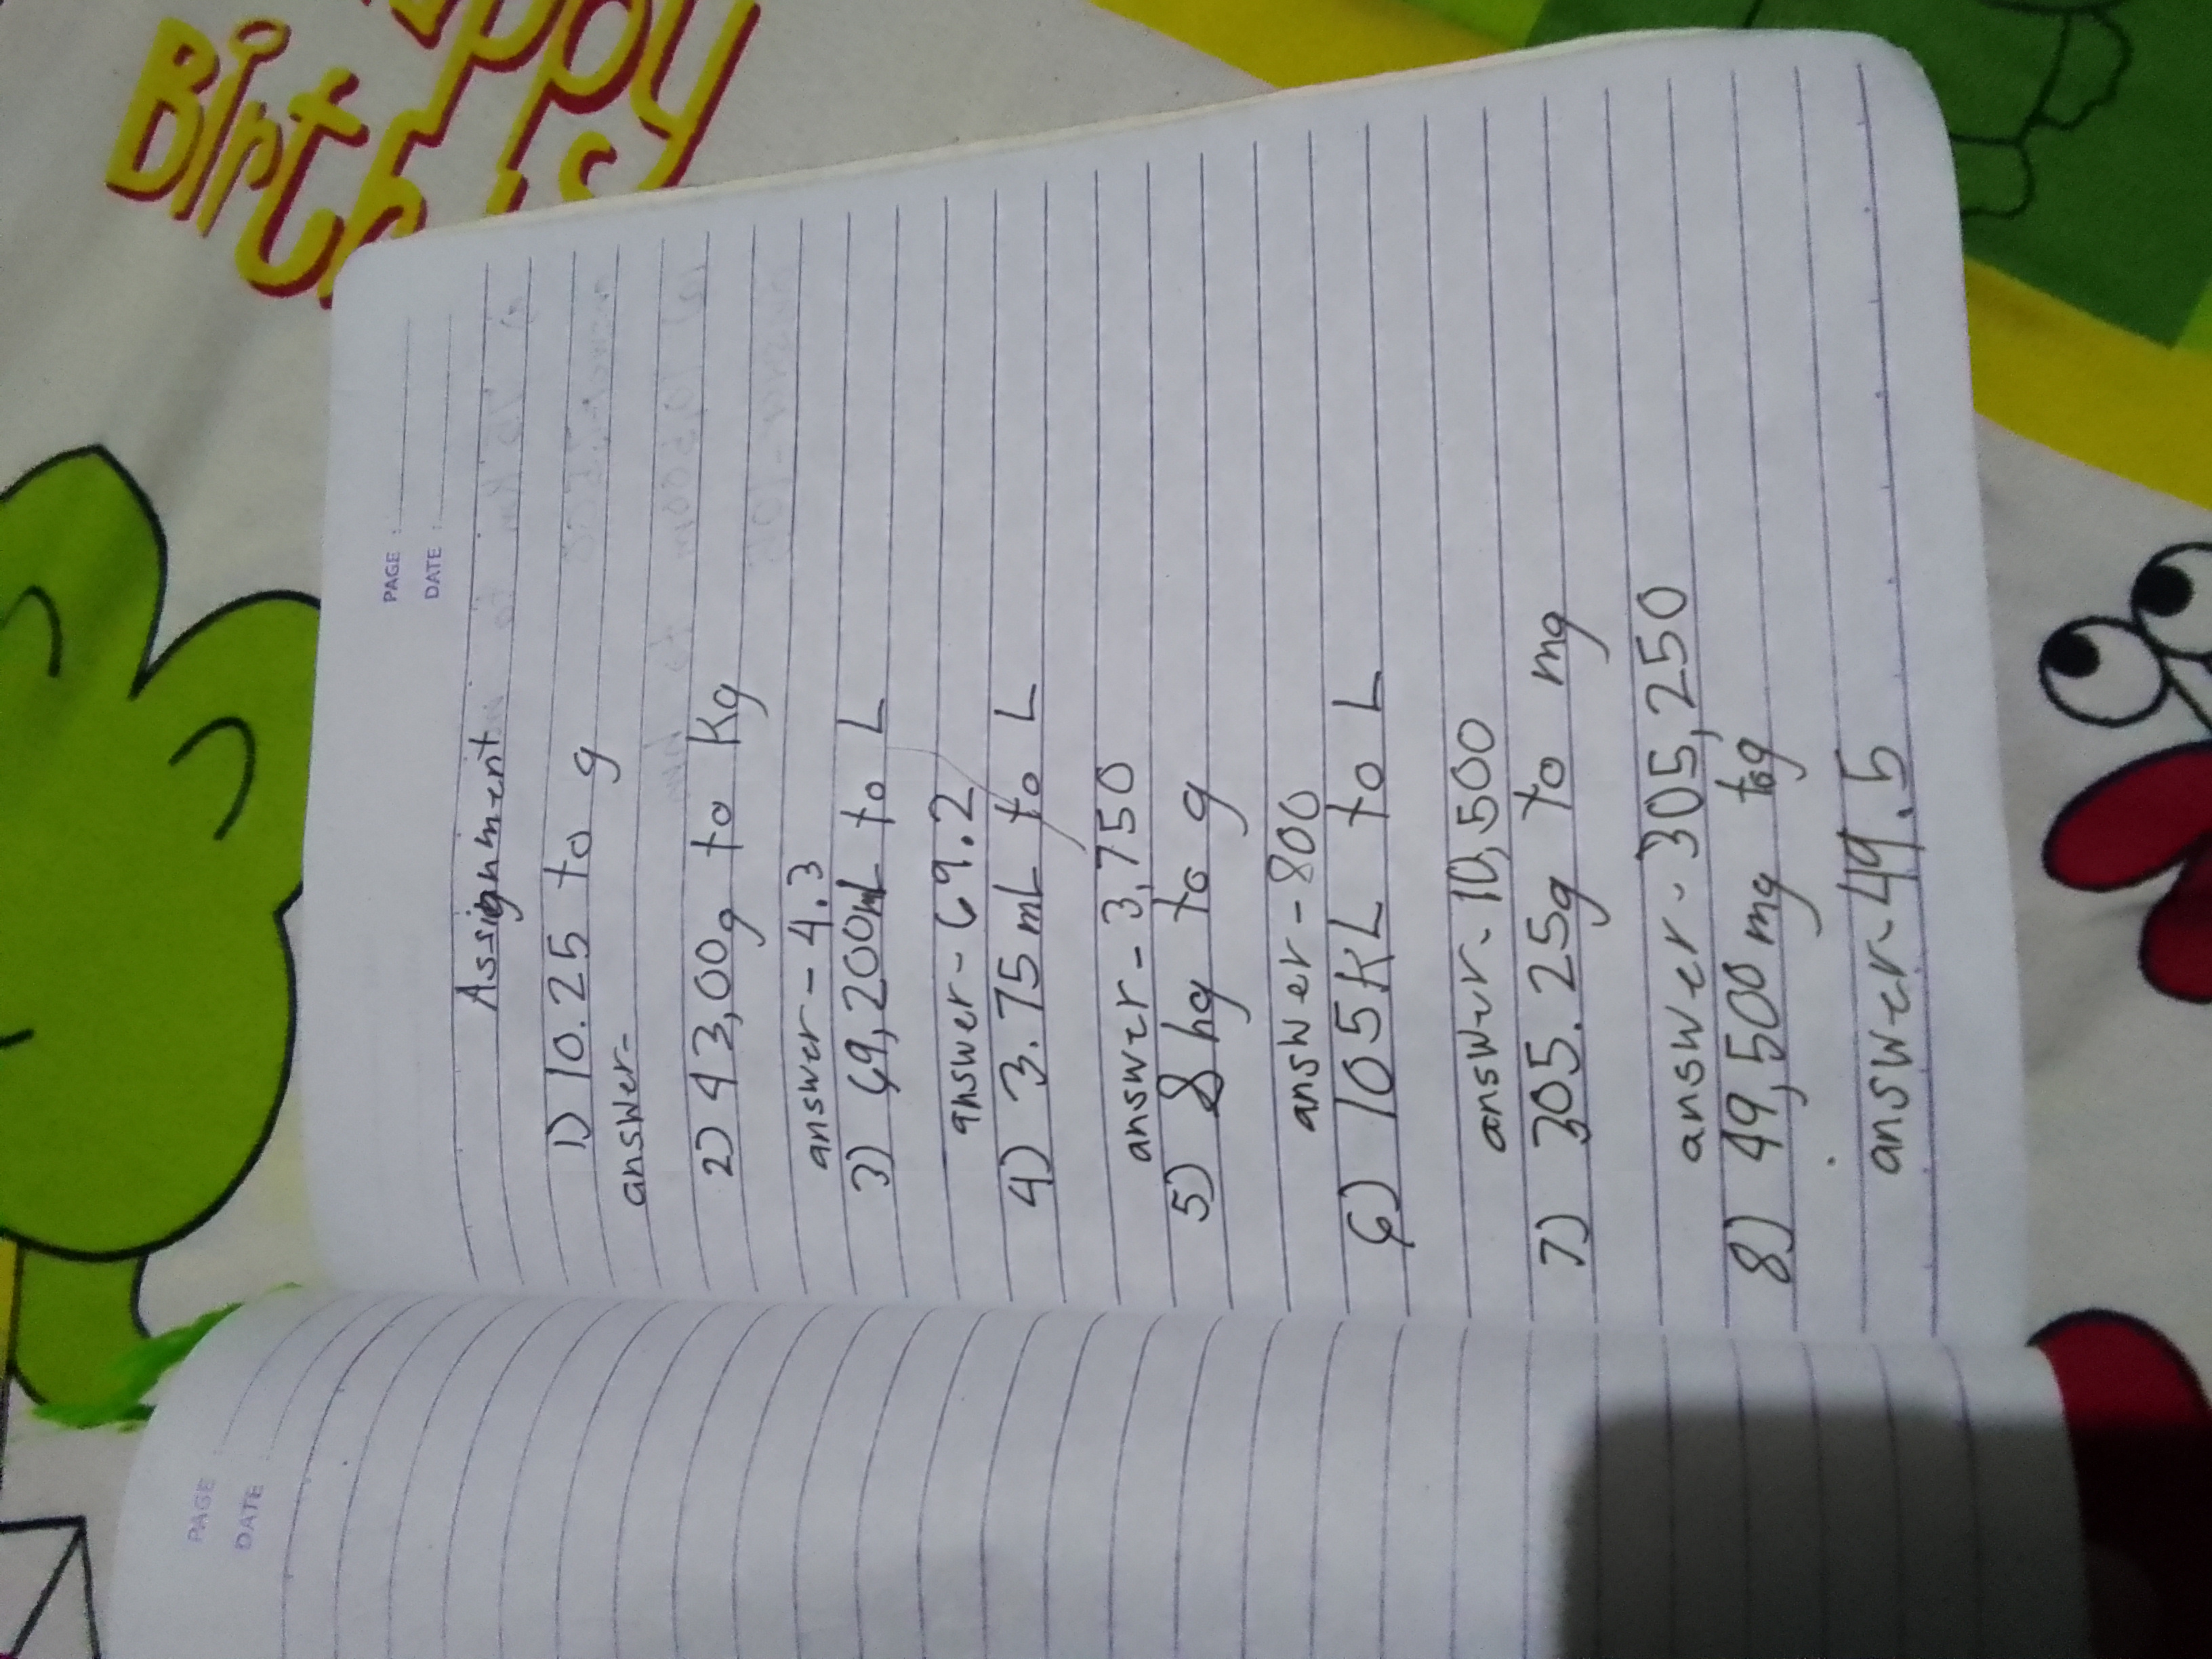 Happy
Birth
is
PAGE :
DATE :
Assignment
1) 10.25 to g
answer-
2) 43,00g to Kg
answer-4.3
3) 69,200mL to L
answer-69.2
4) 3.75 mL to L
answer-3,750
5) 8 hg to g
answer-800
6) 105 KL to L
answer-10,500
7) 305.25g to mg
answer-305,250
8) 49,500 mg to g
answer-49.5
PAGE :
DATE :